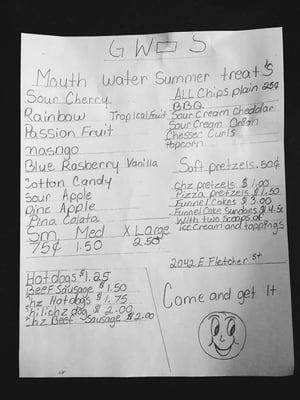 GWOS
Mouth Water Summer treat's
Sour Cherry
Rainbow Tropical Fruit
Passion Fruit
mango
Blue Rasberry Vanilla
Cotton Candy
Sour Apple
Pine Apple
Pina Colata
Sm Med X Large
75¢ 1.50 2.50
ALL Chips plain 25¢
BBQ
Sour Cream Cheddar
Sour Cream Onion
Chesser Curls
Popcorn
Soft pretzels .50¢
Chz pretzels $1.00
Pizza pretzels $1.50
Funnel Cakes $3.00
Funnel Cake Sundies $4.50
With two Scoops of
ice cream and toppings
Hot dogs $1.25
Beef Sausage $1.50
Chz Hot dogs $1.75
Chili chz dog $2.00
Chz Beef Sausage $2.00
2042 E Fletcher St
Come and get It